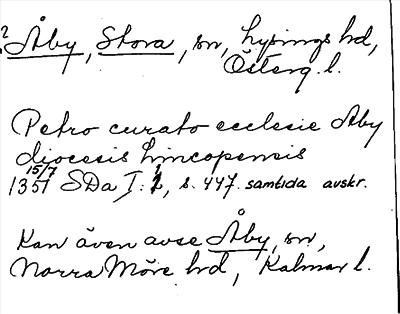 ? Åby, Stora, sn, Lysings hd,
Österg. l.
Petro curato ecclesie Aby
diocesis Lincopensis
15/7
1351 SDa I:1, s. 447. samtida avskr.
Kan även avse Åby, sn,
Norra Möre hd, Kalmar l.